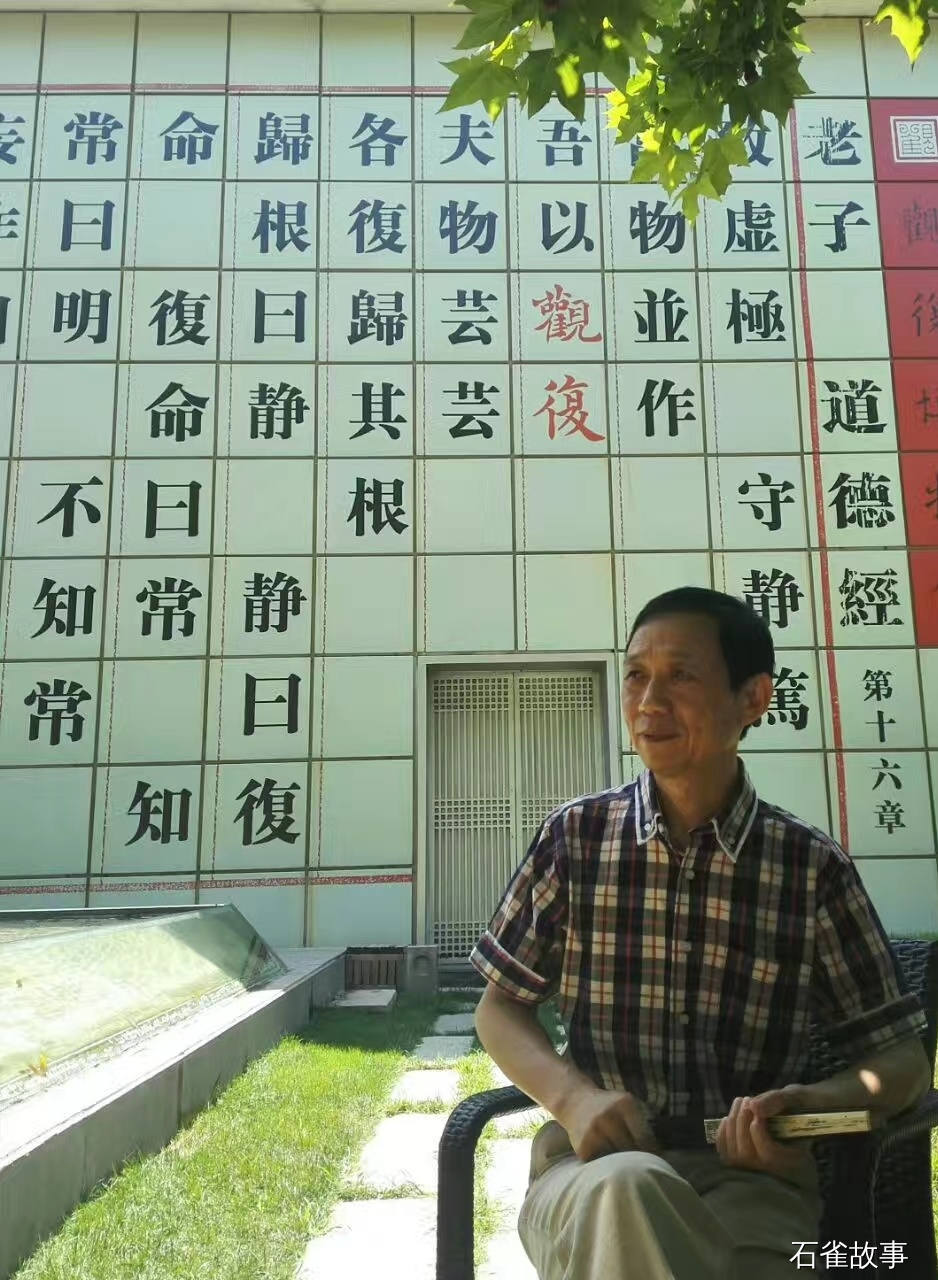 觀復
老子 道德經 第十六章
致虚極 守静篤
物並作
吾以觀復
夫物芸芸
各復歸其根
歸根曰静 静曰復
命 復命曰常 知
常曰明 不知常
石雀故事